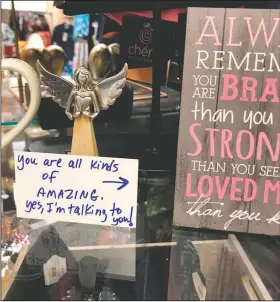 chér
you are all kinds
of
AMAZING.
yes, I'm talking to
you!
ALW
REMEM
YOU ARE BRA
than you
STRON
THAN YOU SEE
LOVED M
than you k